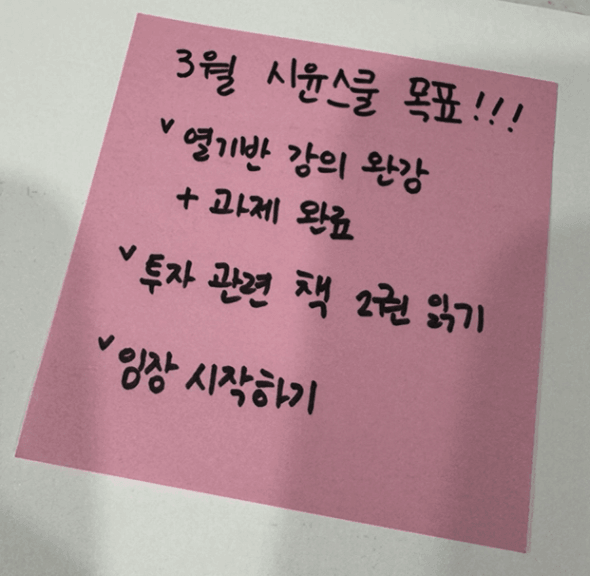 3월 시윤스쿨 목표!!!
v 열기반 강의 완강
+ 과제 완료
v 투자 관련 책 2권 읽기
v 임장 시작하기